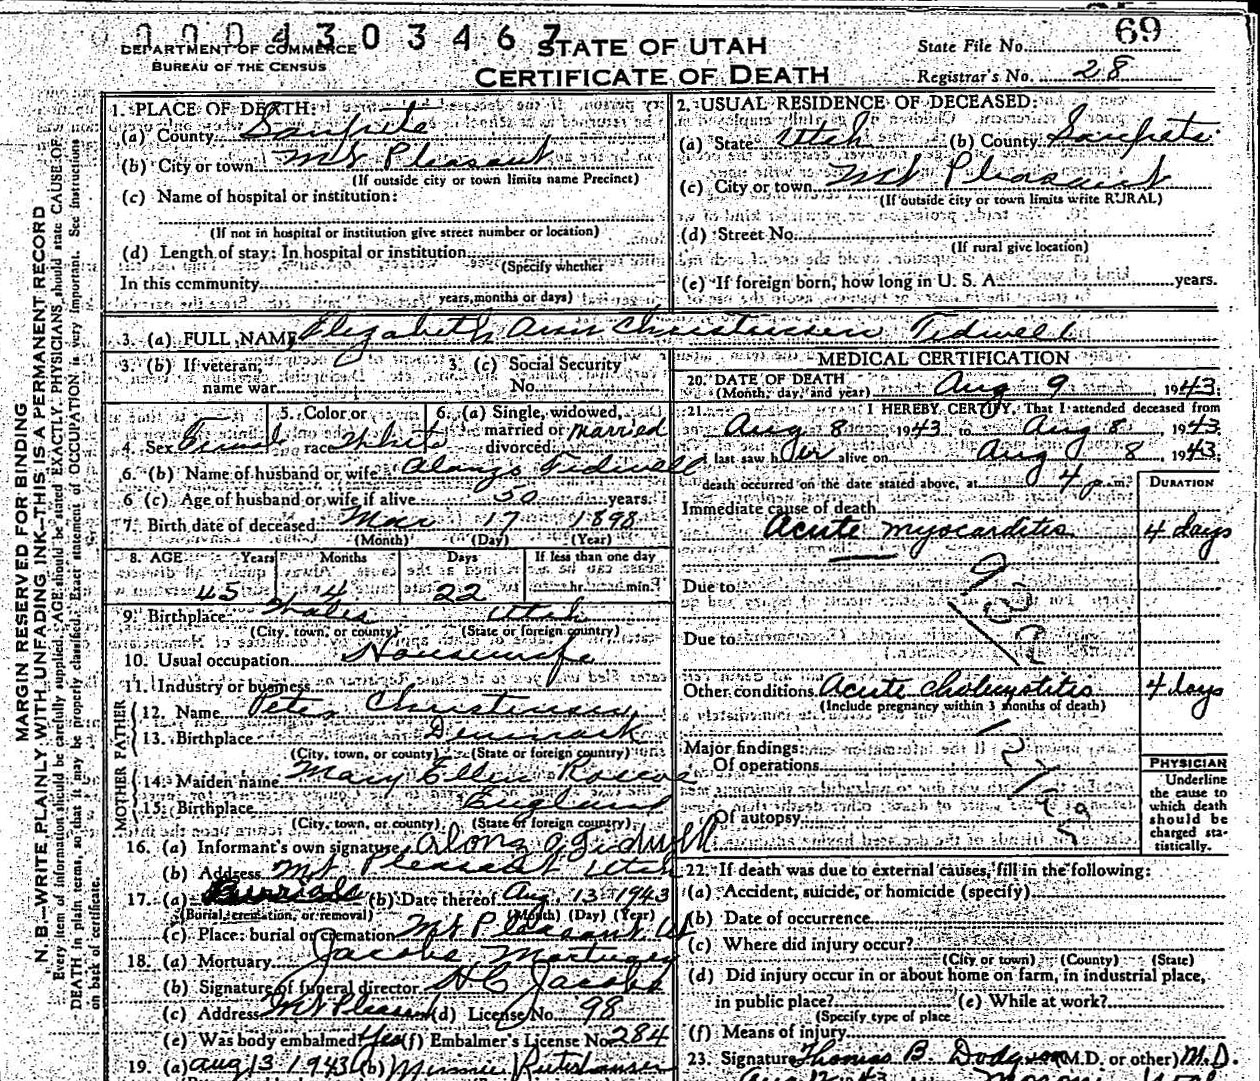 0004303467
DEPARTMENT OF COMMERCE
BUREAU OF THE CENSUS
STATE OF UTAH
CERTIFICATE OF DEATH
State File No. 69
Registrar's No. 28
MARGIN RESERVED FOR BINDING
N. B.—WRITE PLAINLY WITH UNFADING INK—THIS IS A PERMANENT RECORD
Every item of information should be carefully supplied. AGE should be stated EXACTLY. PHYSICIANS should state CAUSE OF
DEATH in plain terms, so that it may be properly classified. Exact statement of OCCUPATION is very important. See instructions
on back of certificate.
1. PLACE OF DEATH:
(a) County Sanpete
(b) City or town Mt Pleasant
(If outside city or town limits name Precinct)
(c) Name of hospital or institution:
(If not in hospital or institution give street number or location)
(d) Length of stay: In hospital or institution
(Specify whether
In this community
years, months or days)
2. USUAL RESIDENCE OF DECEASED:
(a) State Utah (b) County Sanpete
(c) City or town Mt Pleasant
(If outside city or town limits write RURAL)
(d) Street No.
(If rural give location)
(e) If foreign born, how long in U. S. A. years.
3. (a) FULL NAME Elizabeth Ann Christensen Tidwell
3. (b) If veteran, name war
3. (c) Social Security No.
4. Sex Female
5. Color or race White
6. (a) Single, widowed, married or divorced married
6. (b) Name of husband or wife Alonzo Tidwell
6 (c) Age of husband or wife if alive 50 years.
7. Birth date of deceased Mar 17 1898
(Month) (Day) (Year)
8. AGE Years Months Days If less than one day
45 4 22 hr. min.
9. Birthplace Wales Utah
(City, town, or county) (State or foreign country)
10. Usual occupation Housewife
11. Industry or business
FATHER
12. Name Peter Christensen
13. Birthplace Denmark
(City, town, or county) (State or foreign country)
MOTHER
14. Maiden name Mary Ellen
15. Birthplace England
(City, town, or county) (State of foreign country)
16. (a) Informant's own signature Alonzo Tidwell
(b) Address Mt Pleasant Utah
17. (a) (b) Date thereof Aug. 13 1943
(Burial, cremation, or removal) (Month) (Day) (Year)
(c) Place: burial or cremation Mt Pleasant, Ut
18. (a) Mortuary Jacobs Mortuary
(b) Signature of funeral director H C Jacobs
(c) Address Mt Pleasant (d) License No. 98
(e) Was body embalmed? Yes (f) Embalmer's License No. 284
19. (a) Aug 13 1943 (b) Minnie
MEDICAL CERTIFICATION
20. DATE OF DEATH
(Month, day, and year) Aug 9 1943
21. I HEREBY CERTIFY, That I attended deceased from
Aug 8 1943 to Aug 8 1943
I last saw her alive on Aug 8, 1943
death occurred on the date stated above, at 4 p.m.
DURATION
Immediate cause of death
Acute myocarditis 4 days
Due to
Due to
Other conditions Acute cholecystitis 4 days
(Include pregnancy within 3 months of death)
Major findings:
Of operations
Of autopsy
PHYSICIAN
Underline
the cause to
which death
should be
charged sta-
tistically.
22. If death was due to external causes, fill in the following:
(a) Accident, suicide, or homicide (specify)
(b) Date of occurrence
(c) Where did injury occur?
(City or town) (County) (State)
(d) Did injury occur in or about home on farm, in industrial place,
in public place? (e) While at work?
(Specify type of place
(f) Means of injury
23. Signature Thomas B. Dodgson (M.D. or other) M.D.